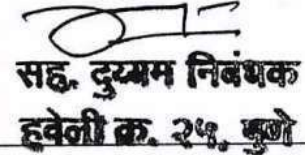 सह. दुय्यम निबंधक
हवेली क्र. २५, पुणे